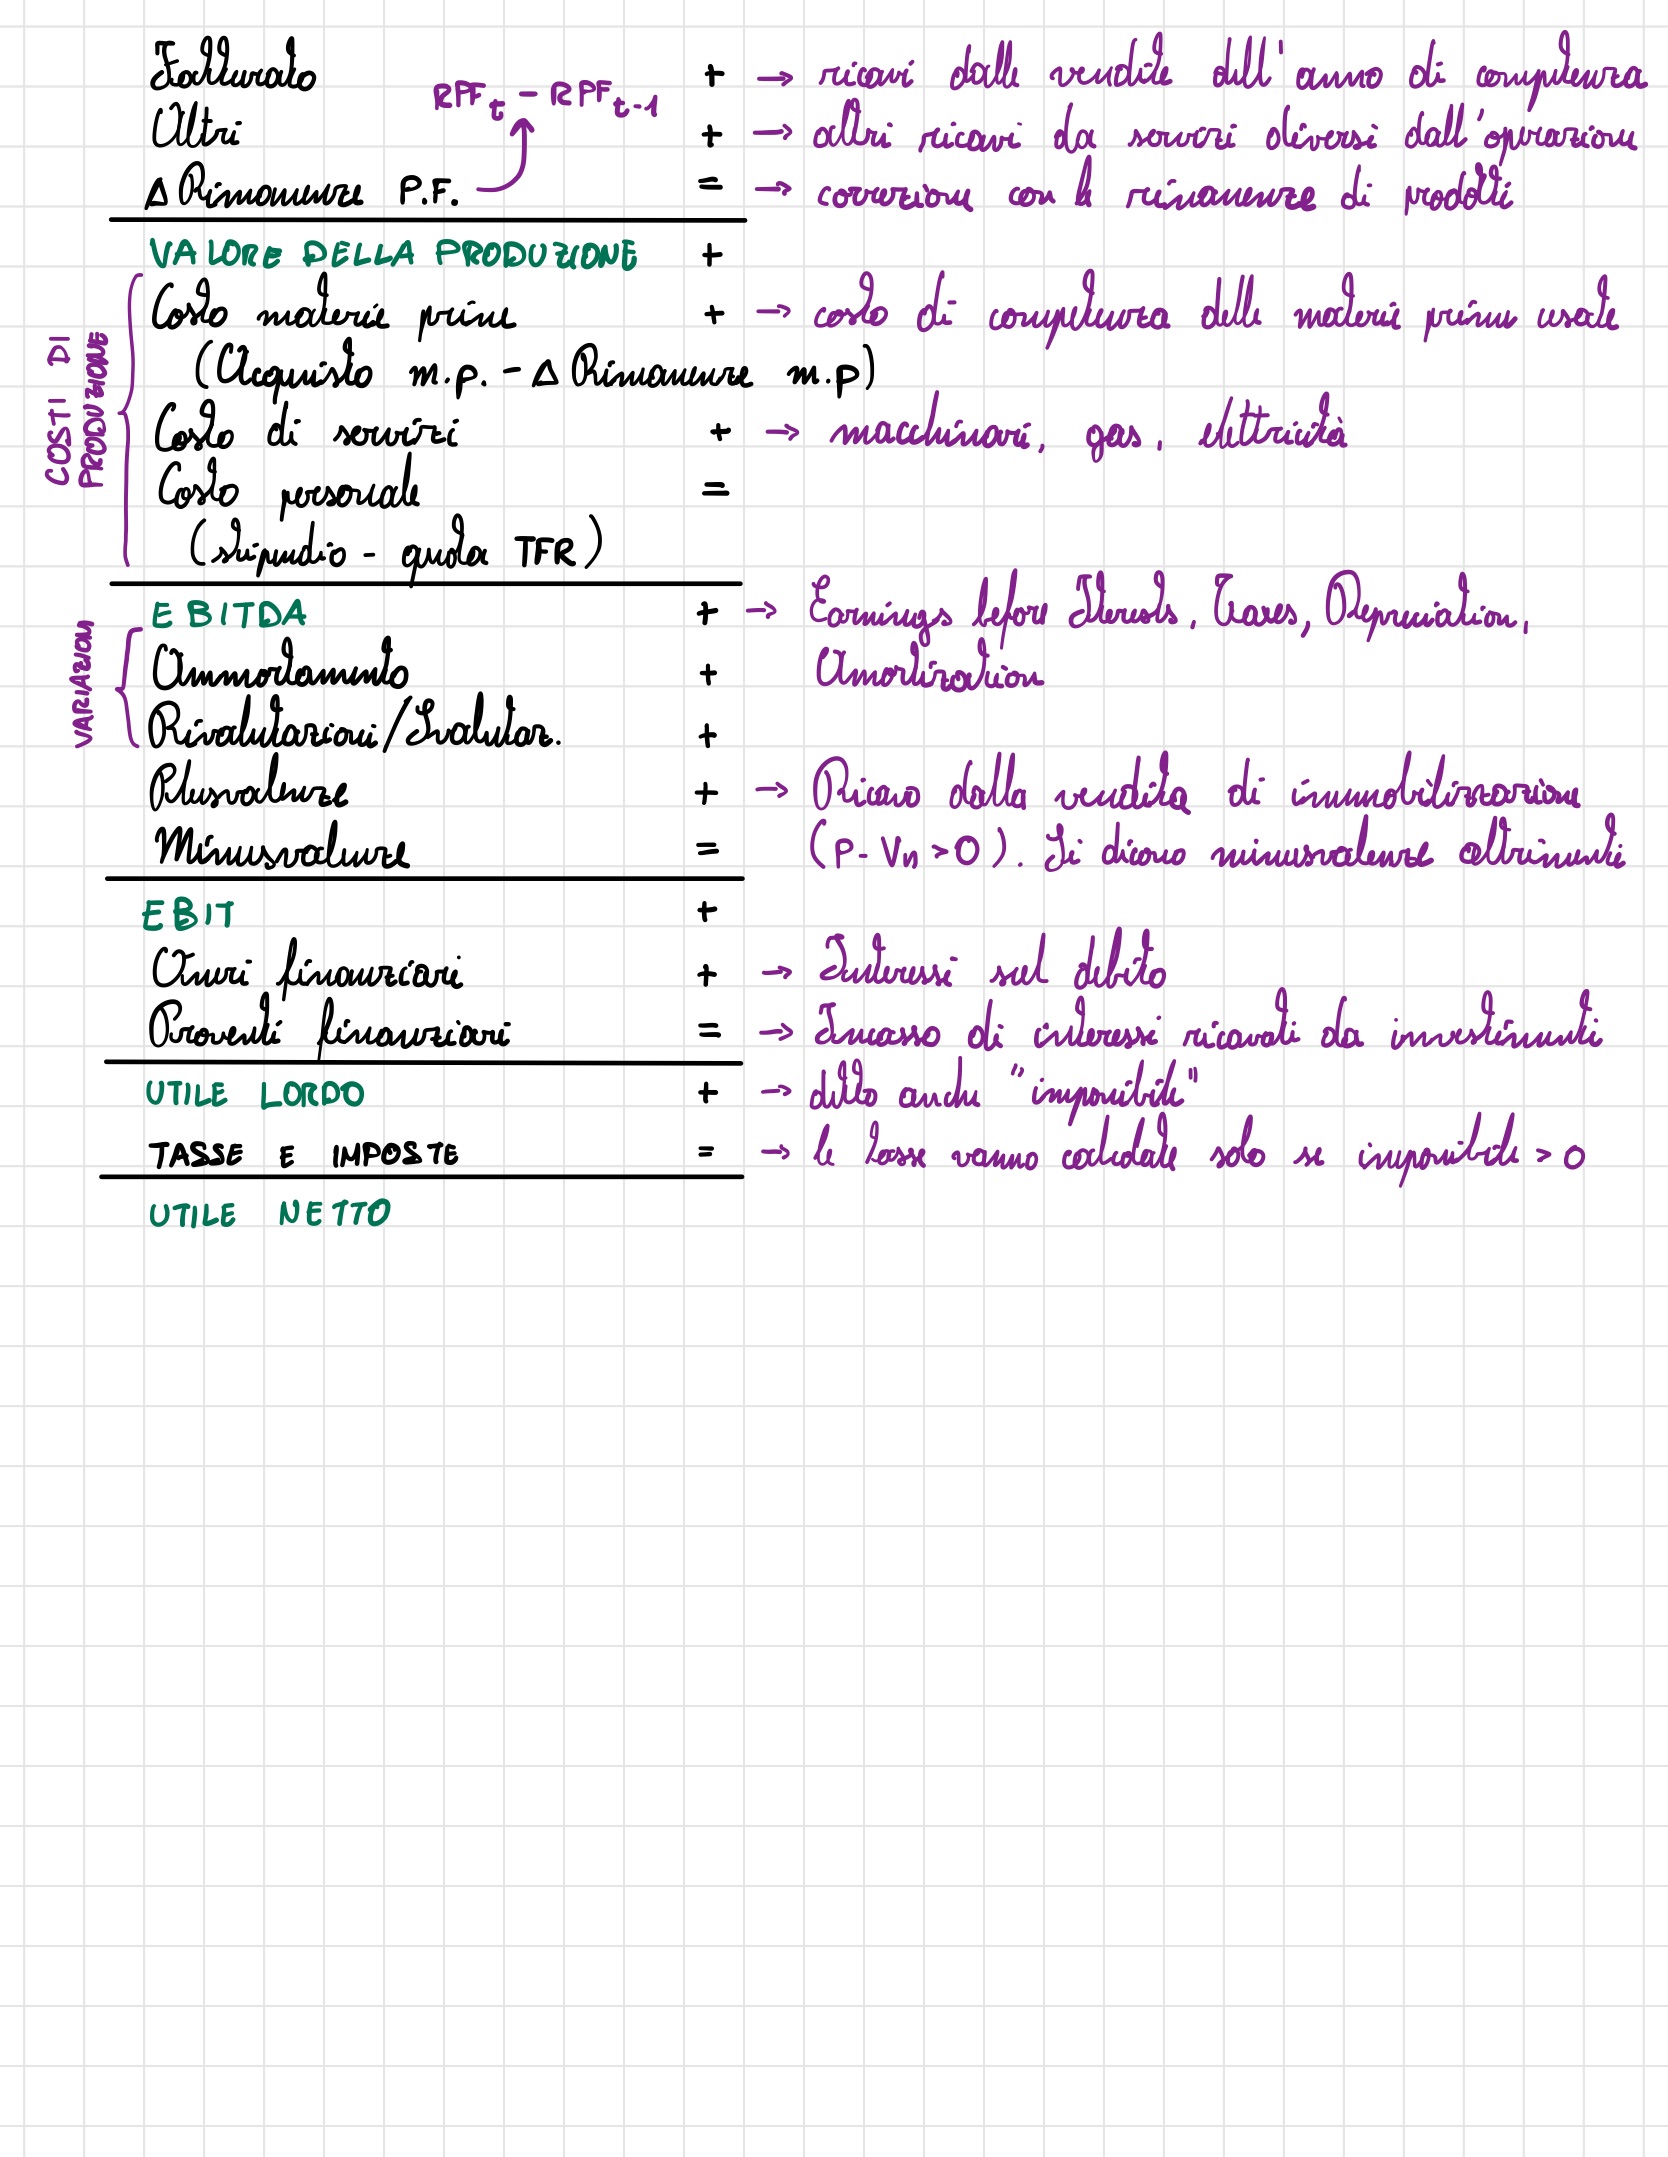 Fatturato + → ricavi dalle vendite dell'anno di competenza
RPFt - RPFt-1
Altri + → altri ricavi da servizi diversi dall'operazione
Δ Rimanenze P.F. = → correzione con le rimanenze di prodotti
VALORE DELLA PRODUZIONE +
COSTI DI PRODUZIONE
Costo materie prime + → costo di competenza delle materie prime usate
(Acquisto m.p. - Δ Rimanenze m.p)
Costo di servizi + → macchinari, gas, elettricità
Costo personale =
(stipendio - quota TFR)
EBITDA + → Earnings before Iterests, Taxes, Depreciation,
VARIAZIONI
Ammortamento + Amortization
Rivalutazioni/Svalutaz. +
Plusvalenze + → Ricavo dalla vendita di immobilizzazione
Minusvalenze = (P - Vn > 0). Si dicono minusvalenze altrimenti
EBIT +
Oneri finanziari + → Interessi sul debito
Proventi finanziari = → Incasso di interessi ricavati da investimenti
UTILE LORDO + → detto anche "imponibile"
TASSE E IMPOSTE = → le tasse vanno calcolate solo se imponibile > 0
UTILE NETTO